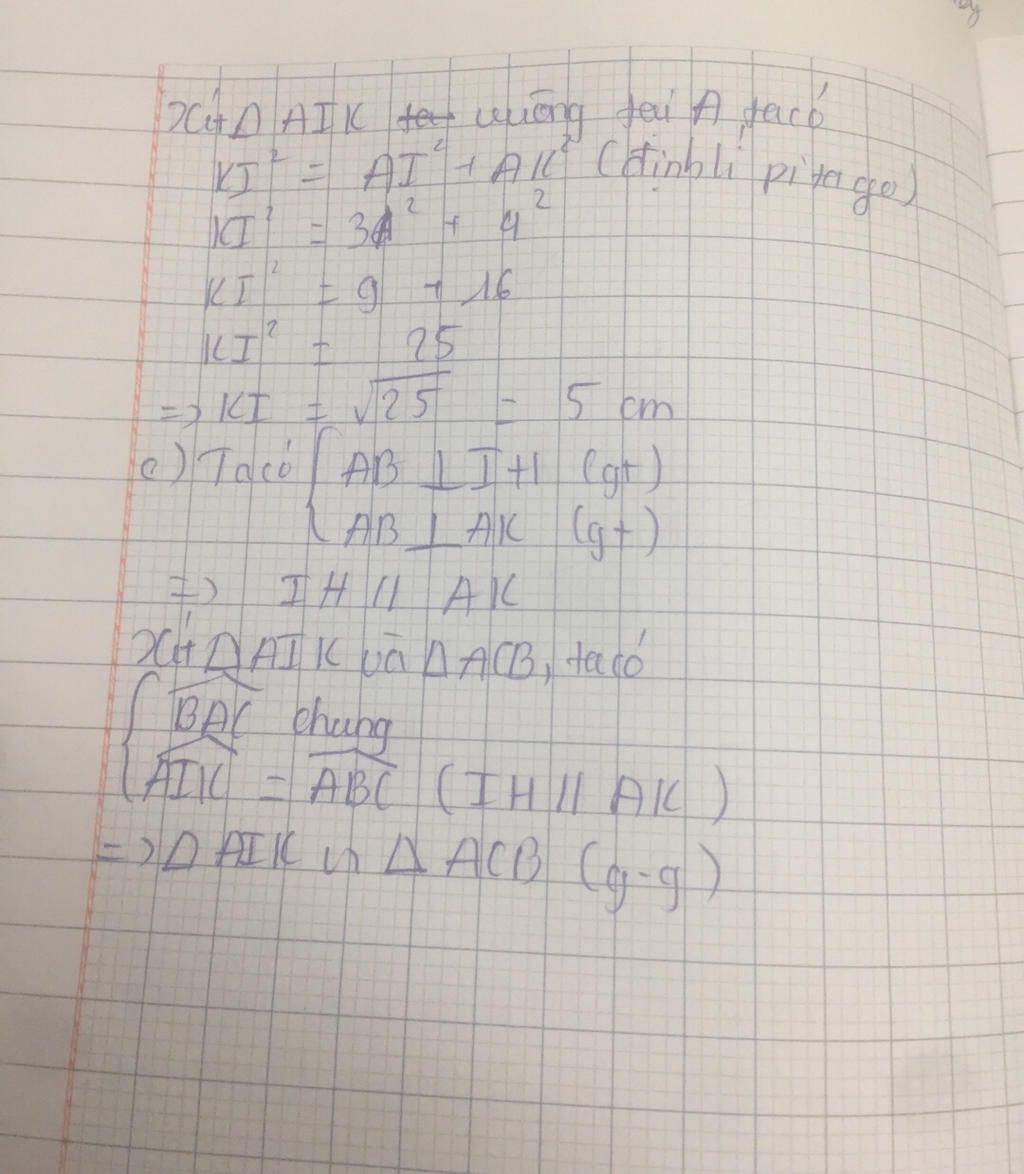 Xét Δ AIK vuông tại A ta có
KI² = AI² + AK² (định lí pi ta go)
KI² = 3² + 4²
KI² = 9 + 16
KI² = 25
=> KI = √25 = 5 cm
c) Ta có { AB ⊥ IH (gt)
AB ⊥ AK (gt)
=> IH // AK
Xét Δ AIK và Δ ACB, ta có
{ BAC chung
AIK = ABC (IH // AK)
=> Δ AIK ∽ Δ ACB (g-g)